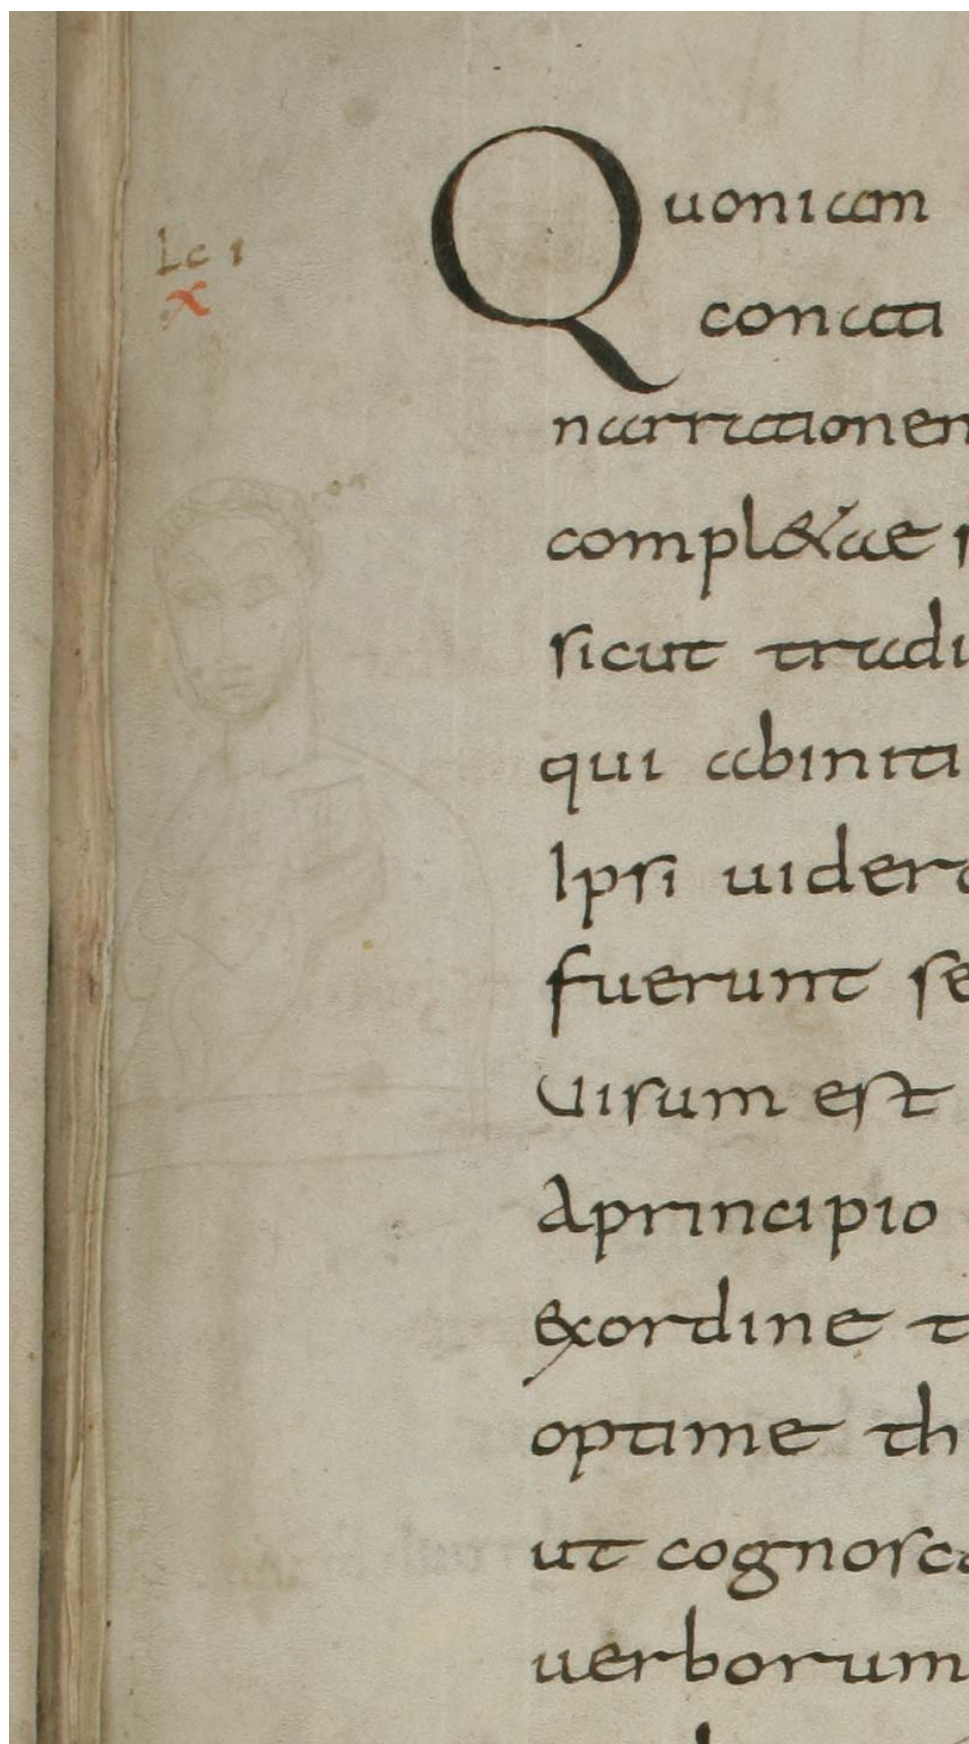 Lc 1
x
Quoniam
conati
narrationem
complet&ae
sicut tradi
qui abiniti
Ipsi uider
fuerunt se
Uisum est
Aprincipio
exordine t
optime th
ut cognosc
uerborum